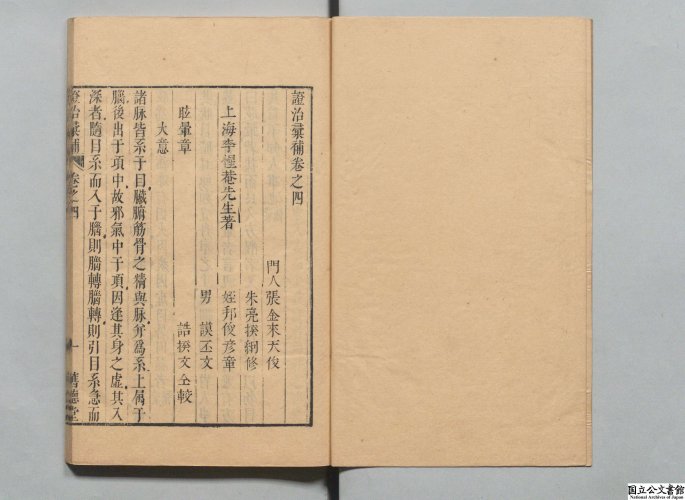 證治彙補卷之四
門人張金來天俊
上海李惺菴先生著 朱亮揆綱修
姪邦俊彥章
男 謨丕文
眩暈章 誥揆文仝較
大意
諸脉皆系于目臟腑筋骨之精與脉并為系上属于
腦後出于項中故邪氣中于項因逢其身之虛其入
深者隨目系而入于腦則腦轉腦轉則引目系急而
證治彙補 卷之四 一 德堂
国立公文書館
National Archives of Japan